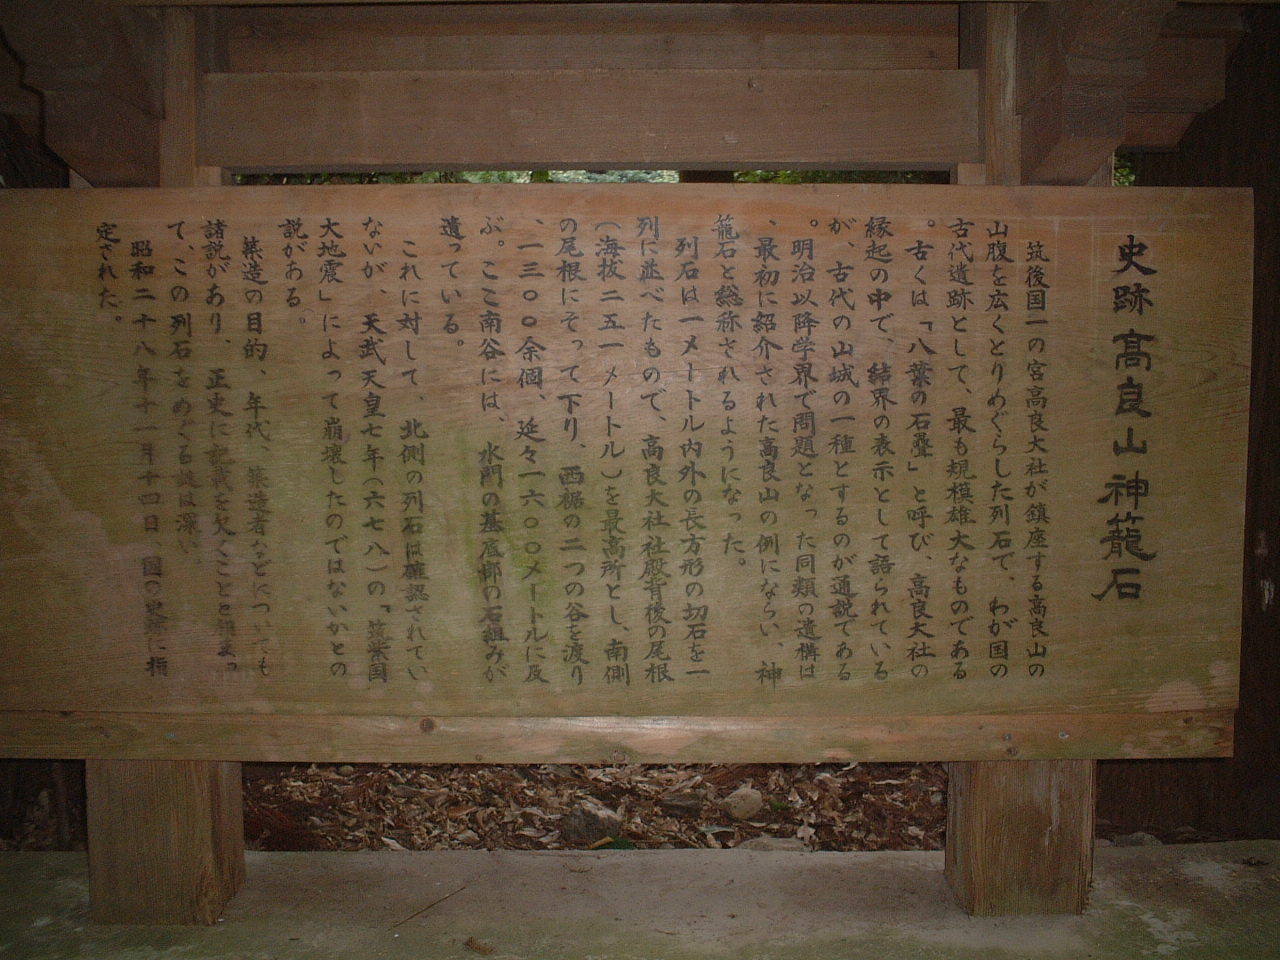 史跡 高良山神籠石
筑後国一の宮高良大社が鎮座する高良山の
山腹を広くとりめぐらした列石で、わが国の
古代遺跡として、最も規模雄大なものである
。古くは「八葉の石畳」と呼び、高良大社の
縁起の中で、結界の表示として語られている
が、古代の山城の一種とするのが通説である
。明治以降学界で問題となった同類の遺構は
、最初に紹介された高良山の例にならい、神
籠石と総称されるようになった。
列石は一メートル内外の長方形の切石を一
列に並べたもので、高良大社社殿背後の尾根
（海抜二五一メートル）を最高所とし、南側
の尾根にそって下り、西裾の二つの谷を渡り
、一三〇〇余個、延々一六〇〇メートルに及
ぶ。ここ南谷には、水門の基底部の石組みが
遺っている。
これに対して、北側の列石は確認されてい
ないが、天武天皇七年（六七八）の「筑紫国
大地震」によって崩壊したのではないかとの
説がある。
築造の目的、年代、築造者などについても
諸説があり、正史に記載を欠くことと相まっ
て、この列石をめぐる謎は深い。
昭和二十八年十一月十四日 国の史跡に指
定された。